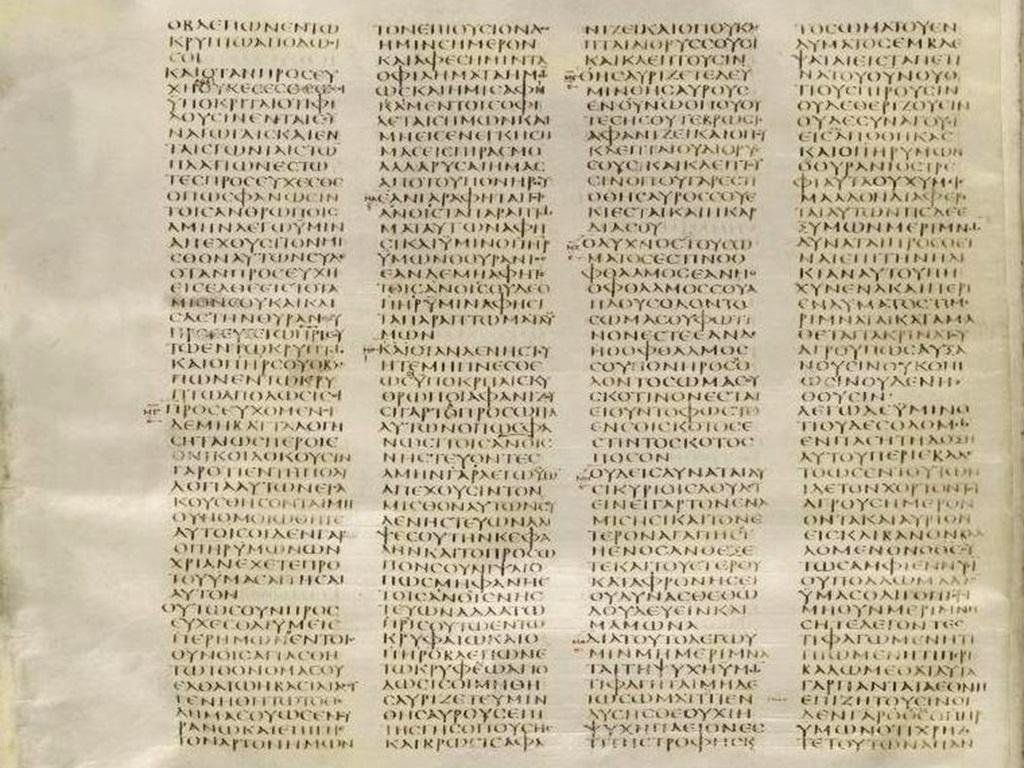 ΟΒΛΕΠΩΝΕΝΤΩ
ΚΡΥΠΤΩΑΠΟΔΩϹΙ
ϹΟΙ
ΚΑΙΟΤΑΝΠΡΟϹΕΥ
ΧΗΟΥΚΕϹΕϹΘΕΩϹ
ΥΠΟΚΡΙΤΑΙΟΤΙΦΙ
ΛΟΥϹΙΝΕΝΤΑΙϹϹΥ
ΝΑΓΩΓΑΙϹΚΑΙΕΝ
ΤΑΙϹΓΩΝΙΑΙϹΤΩ
ΠΛΑΤΙΩΝΕϹΤΩ
ΤΕϹΠΡΟϹΕΥΧΕϹΘΕ
ΟΠΩϹΦΑΝΩϹΙΝ
ΤΟΙϹΑΝΘΡΩΠΟΙϹ
ΑΜΗΝΛΕΓΩΥΜΙΝ
ΑΠΕΧΟΥϹΙΤΟΝΜΙ
ϹΘΟΝΑΥΤΩΝϹΥΔΕ
ΟΤΑΝΠΡΟϹΕΥΧΗ
ΕΙϹΕΛΘΕΕΙϹΤΟΤΑ
ΜΙΟΝϹΟΥΚΑΙΚΛΙ
ϹΑϹΤΗΝΘΥΡΑΝϹΟΥ
ΤΩΕΝΤΩΚΡΥΠΤΩ
ΚΑΙΟΠΗΡϹΟΥΟΒΛΕ
ΠΩΝΕΝΤΩΚΡΥ
ΠΤΩΑΠΟΔΩϹΙϹΟΙ
ΠΡΟϹΕΥΧΟΜΕΝΟΙ
ΔΕΜΗΒΑΤΤΑΛΟΓΗ
ϹΗΤΑΙΩϹΠΕΡΟΙΕ
ΘΝΙΚΟΙΔΟΚΟΥϹΙΝ
ΓΑΡΟΤΙΕΝΤΗΠΟΛΥ
ΛΟΓΙΑΑΥΤΩΝΕΙϹΑ
ΚΟΥϹΘΗϹΟΝΤΑΙΜΗ
ΟΥΝΟΜΟΙΩΘΗΤΕ
ΑΥΤΟΙϹΟΙΔΕΝΓΑΡ
ΟΠΗΡΥΜΩΝΩΝ
ΧΡΙΑΝΕΧΕΤΕΠΡΟ
ΤΟΥΥΜΑϹΑΙΤΗϹΑΙ
ΑΥΤΟΝ
ΟΥΤΩϹΟΥΝΠΡΟϹ
ΕΥΧΕϹΘΑΙΥΜΕΙϹ
ΠΕΡΗΜΩΝΟΕΝΤΟΙϹ
ΟΥΝΟΙϹΑΓΙΑϹΘΗ
ΤΩΤΟΟΝΟΜΑϹΟΥ
ΕΛΘΑΤΩΗΒΑϹΙΛΙΑϹΥ
ΓΕΝΗΘΗΤΩΤΟΘΕ
ΛΗΜΑϹΟΥΩϹΕΝΟΥ
ΡΑΝΩΚΑΙΕΠΙΓΗϹ
ΤΟΝΑΡΤΟΝΗΜΩΝ
ΤΟΝΕΠΙΟΥϹΙΟΝΔΟϹ
ΗΜΙΝϹΗΜΕΡΟΝ
ΚΑΙΑΦΕϹΗΜΙΝΤΑ
ΟΦΙΛΗΜΑΤΑΗΜΩ
ΩϹΚΑΙΗΜΙϹΑΦΗ
ΚΑΜΕΝΤΟΙϹΟΦΙ
ΛΕΤΑΙϹΗΜΩΝΚΑΙ
ΜΗΕΙϹΕΝΕΓΚΗϹΗ
ΜΑϹΕΙϹΠΙΡΑϹΜΟ
ΑΛΛΑΡΥϹΑΙΗΜΑϹ
ΑΠΟΤΟΥΠΟΝΗΡΟΥ
ΕΑΝΓΑΡΑΦΗΤΑΙΤΟΙϹ
ΑΝΟΙϹΤΑΠΑΡΑΠΤΩ
ΜΑΤΑΑΥΤΩΝΑΦΗ
ϹΙΚΑΙΥΜΙΝΟΠΗΡ
ΥΜΩΝΟΟΥΡΑΝΙΟϹ
ΕΑΝΔΕΜΗΑΦΗΤΕ
ΤΟΙϹΑΝΟΙϹΟΥΔΕΟ
ΠΗΡΥΜΙΝΑΦΗϹΙ
ΤΑΠΑΡΑΠΤΩΜΑΤΑΥ
ΜΩΝ
ΚΑΙΟΤΑΝΔΕΝΗϹΤΕΥ
ΗΤΕΜΗΓΙΝΕϹΘΕ
ΩϹΥΠΟΚΡΙΤΑΙϹΚΥ
ΘΡΩΠΟΙΑΦΑΝΙΖΟΥ
ϹΙΓΑΡΤΟΠΡΟϹΩΠΟ
ΑΥΤΩΝΟΠΩϹΦΑ
ΝΩϹΙΤΟΙϹΑΝΟΙϹ
ΝΗϹΤΕΥΟΝΤΕϹ
ΑΜΗΝΓΑΡΛΕΓΩΥΜΙ
ΑΠΕΧΟΥϹΙΝΤΟΝ
ΜΙϹΘΟΝΑΥΤΩΝϹΥ
ΔΕΝΗϹΤΕΥΩΝΑΛΙ
ΨΕϹΟΥΤΗΝΚΕΦΑ
ΛΗΝΚΑΙΤΟΠΡΟϹΩ
ΠΟΝϹΟΥΝΙΨΑΙΟ
ΠΩϹΜΗΦΑΝΗϹ
ΤΟΙϹΑΝΟΙϹΝΗϹ
ΤΕΥΩΝΑΛΛΑΤΩ
ΠΡΙϹΟΥΤΩΕΝΤΩ
ΚΡΥΦΑΙΩΚΑΙΟ
ΠΗΡΟΒΛΕΠΩΝΕ
ΤΩΚΡΥΦΕΩΑΠΟ
ΔΩϹΙϹΟΙΜΗΘΗ
ϹΑΥΡΙΖΕΤΕΥΜΙΝ
ΘΗϹΑΥΡΟΥϹΕΠΙ
ΤΗϹΓΗϹΟΠΟΥϹΗϹ
ΚΑΙΒΡΩϹΙϹΑΦΑ
ΝΙΖΕΙΚΑΙΟΠΟΥΚΛΕ
ΠΤΑΙΔΙΟΡΥϹϹΟΥϹΙ
ΚΑΙΚΛΕΠΤΟΥϹΙΝ
ΘΗϹΑΥΡΙΖΕΤΕΔΕΥ
ΜΙΝΘΗϹΑΥΡΟΥϹ
ΕΝΟΥΝΩΟΠΟΥΟΥ
ΤΕϹΗϹΟΥΤΕΒΡΩϹΙϹ
ΑΦΑΝΙΖΕΙΚΑΙΟΠΟΥ
ΚΛΕΠΤΑΙΟΥΔΙΟΡΥϹ
ϹΟΥϹΙΚΑΙΚΛΕΠΤΟΥ
ϹΙΝΟΠΟΥΓΑΡΕϹΤΙ
ΟΘΗϹΑΥΡΟϹϹΟΥΕ
ΚΙΕϹΤΑΙΚΑΙΗΚΑΡ
ΔΙΑϹΟΥ
ΟΛΥΧΝΟϹΤΟΥϹΩ
ΜΑΤΟϹΕϹΤΙΝΟΟ
ΦΘΑΛΜΟϹΕΑΝΗΟ
ΟΦΘΑΛΜΟϹϹΟΥΑ
ΠΛΟΥϹΟΛΟΝΤΟ
ϹΩΜΑϹΟΥΦΩΤΙ
ΝΟΝΕϹΤΕΕΑΝΔΕ
ΗΟΟΦΘΑΛΜΟϹ
ϹΟΥΠΟΝΗΡΟϹΟ
ΛΟΝΤΟϹΩΜΑϹΟΥ
ϹΚΟΤΙΝΟΝΕϹΤΑΙ
ΕΙΟΥΝΤΟΦΩϹΤΟ
ΕΝϹΟΙϹΚΟΤΟϹΕ
ϹΤΙΝΤΟϹΚΟΤΟϹ
ΠΟϹΟΝ
ΟΥΔΕΙϹΔΥΝΑΤΑΙΔΥ
ϹΙΚΥΡΙΟΙϹΔΟΥΛΕΥ
ΕΙΝΕΙΓΑΡΤΟΝΕΝΑ
ΜΙϹΗϹΙΚΑΙΤΟΝΕ
ΤΕΡΟΝΑΓΑΠΗϹΙΗ
ΕΝΟϹΑΝΘΕΞΕ
ΤΕΚΑΙΤΟΥΕΤΕΡΟΥ
ΚΑΤΑΦΡΟΝΗϹΕΙ
ΟΥΔΥΝΑϹΘΕΘΩ
ΔΟΥΛΕΥΕΙΝΚΑΙ
ΜΑΜΩΝΑ
ΔΙΑΤΟΥΤΟΛΕΓΩΥ
ΜΙΝΜΗΜΕΡΙΜΝΑ
ΤΑΙΤΗΨΥΧΗΥΜΩ
ΤΙΦΑΓΗΤΑΙΜΗΔΕ
ΤΩϹΩΜΑΤΙΤΙΕΝ
ΔΥϹΗϹΘΕΟΥΧΙΗ
ΨΥΧΗΠΛΕΙΟΝΕϹ
ΤΙΤΗϹΤΡΟΦΗϹΚΑΙ
ΤΟϹΩΜΑΤΟΥΕΝ
ΔΥΜΑΤΟϹΕΜΒΛΕ
ΨΑΤΑΙΕΙϹΤΑΠΕΤΙ
ΝΑΤΟΥΟΥΝΟΥΟ
ΤΙΟΥϹΠΙΡΟΥϹΙΝ
ΟΥΔΕΘΕΡΙΖΟΥϹΙΝ
ΟΥΔΕϹΥΝΑΓΟΥϹΙ
ΕΙϹΑΠΟΘΗΚΑϹ
ΚΑΙΟΠΗΡΥΜΩΝ
ΟΟΥΡΑΝΙΟϹΤΡΕ
ΦΙΑΥΤΑΟΥΧΥΜΙϹ
ΜΑΛΛΟΝΔΙΑΦΕΡΕ
ΤΑΙΑΥΤΩΝΤΙϹΔΕΕ
ΞΥΜΩΝΜΕΡΙΜΝΩ
ΔΥΝΑΤΑΙΠΡΟϹΘΕΙ
ΝΑΙΕΠΙΤΗΝΗΛΙ
ΚΙΑΝΑΥΤΟΥΠΗ
ΧΥΝΕΝΑΚΑΙΠΕΡΙ
ΕΝΔΥΜΑΤΟϹΤΙΜΕ
ΡΙΜΝΑΤΑΙΚΑΤΑΜΑ
ΘΕΤΑΙΤΑΚΡΙΝΑΤΟΥ
ΑΓΡΟΥΠΩϹΑΥΞΑ
ΝΟΥϹΙΝΟΥΚΟΠΙ
ΩϹΙΝΟΥΔΕΝΗ
ΘΟΥϹΙΝ
ΛΕΓΩΔΕΥΜΙΝΟ
ΤΙΟΥΔΕϹΟΛΟΜΩ
ΕΝΠΑϹΗΤΗΔΟΞΗ
ΑΥΤΟΥΠΕΡΙΕΒΑΛΕ
ΤΟΩϹΕΝΤΟΥΤΩΝ
ΙΔΕΤΟΝΧΟΡΤΟΝΤΟΥ
ΑΓΡΟΥϹΗΜΕΡΟΝ
ΟΝΤΑΚΑΙΑΥΡΙΟΝ
ΕΙϹΚΛΙΒΑΝΟΝΒΑΛ
ΛΟΜΕΝΟΝΟΘϹΟΥ
ΤΩϹΑΜΦΙΕΝΝΥϹΙ
ΟΥΠΟΛΛΩΜΑΛΛΟ
ΥΜΑϹΟΛΙΓΟΠΙϹΤΟΙ
ΜΗΟΥΝΜΕΡΙΜΝΗ
ϹΗΤΕΛΕΓΟΝΤΕϹ
ΤΙΦΑΓΩΜΕΝΗΤΙ
ΠΙΩΜΕΝΗΤΙΠΕΡΙ
ΒΑΛΩΜΕΘΑΤΑΥΤΑ
ΓΑΡΠΑΝΤΑΤΑΕΘΝΗ
ΕΠΙΖΗΤΟΥϹΙΝΟΙ
ΔΕΝΓΑΡΟΘϹΟΠΗΡ
ΥΜΩΝΟΤΙΧΡΗΖΕ
ΤΕΤΟΥΤΩΝΑΠΑΝ